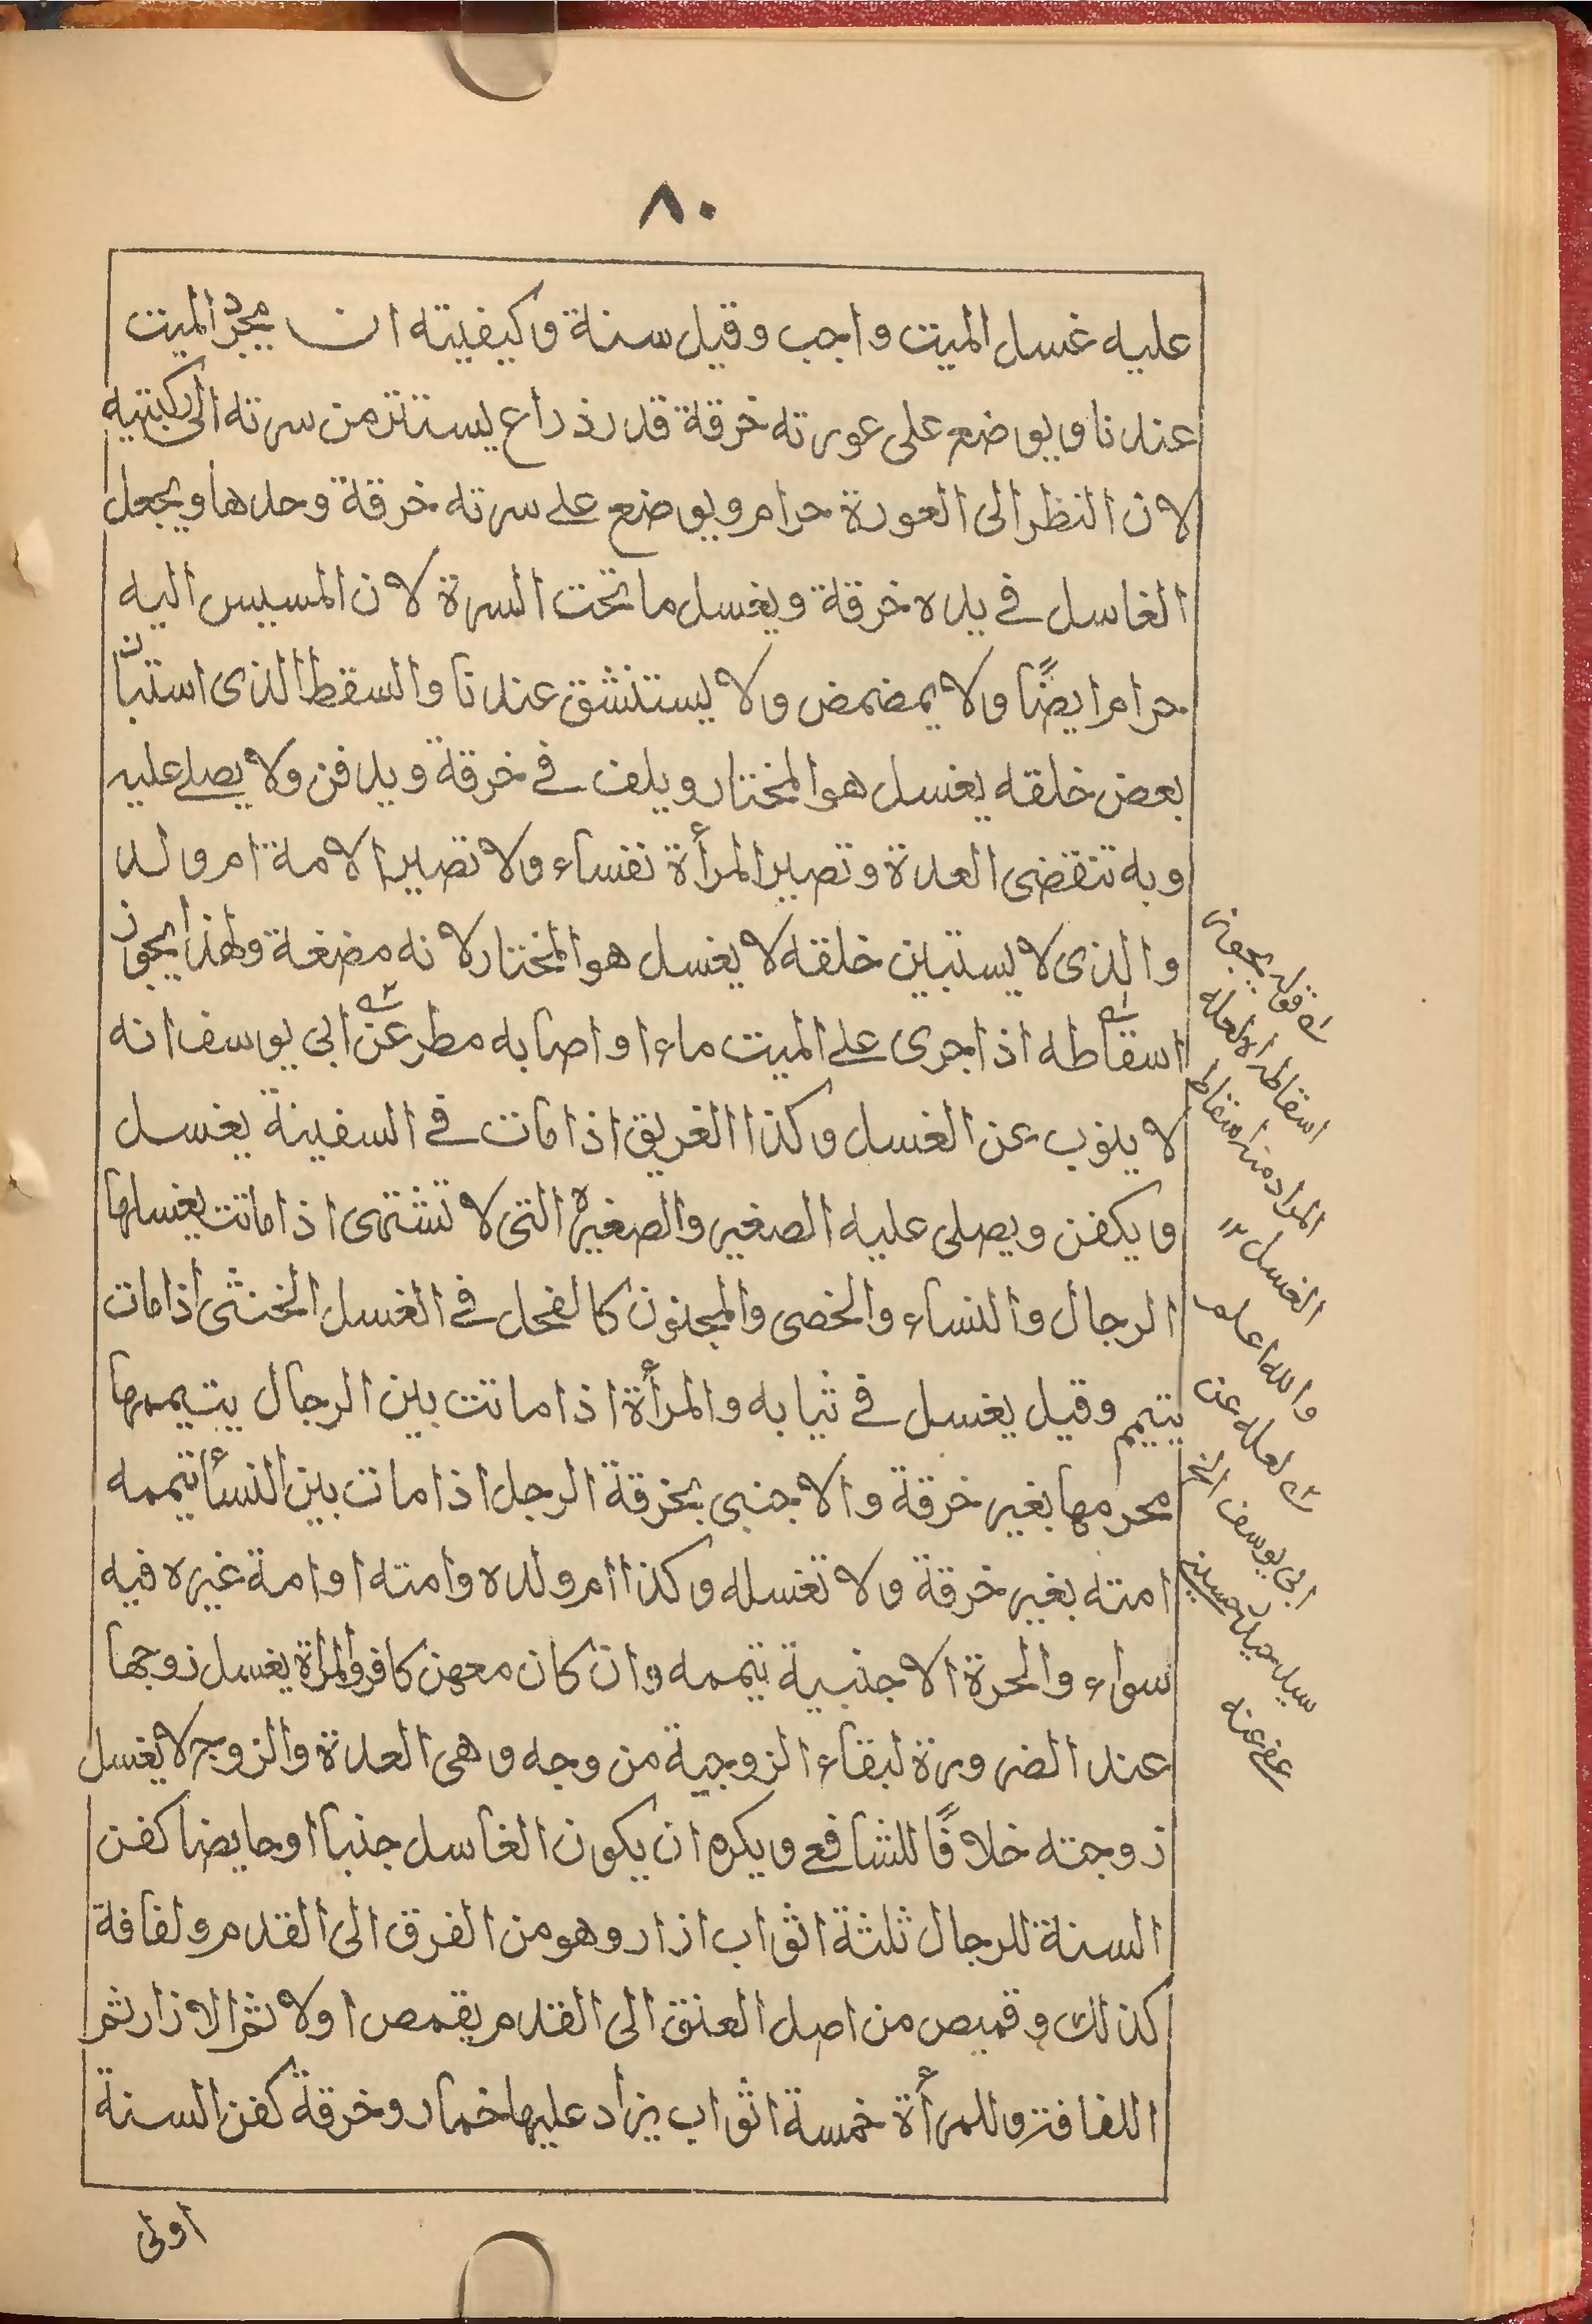 ٨٠
عليه غسل الميت واجب وقيل سنة وكيفيته ان يجرد الميت
عندنا ويوضع على عورته خرقة قدر ذراع يستتر من سرته الى ركبتيه
لان النظر الى العورة حرام ويوضع على سرته خرقة وحدها ويجعل
الغاسل في يده خرقة ويغسل ما تحت السرة لان المسيس اليه
حرام ايضًا ولا يمضمض ولا يستنشق عندنا والسقط الذى استبان
بعض خلقه يغسل هو المختار ويلف في خرقة ويدفن ولا يصلى عليه
وبه تنقضى العدة وتصير المرأة نفساء ولا تصير الامة ام ولد
والذى لا يستبين خلقه لا يغسل هو المختار لانه مضغة ولهذا يجوز
اسقاطه اذا جرى على الميت ماء او اصابه مطر عن ابى يوسف انه
لا ينوب عن الغسل وكذا الغريق اذا مات في السفينة يغسل
ويكفن ويصلى عليه الصغير والصغيرة التى لا تشتهى اذا ماتت يغسلها
الرجال والنساء والخصى والمجنون كالفحل في الغسل الخنثى اذا مات
يتيمم وقيل يغسل في ثيابه والمرأة اذا ماتت بين الرجال يتيممها
محرمها بغير خرقة والاجنبى بخرقة الرجل اذا مات بين النسأ تيممه
امته بغير خرقة ولا تغسله وكذا ام ولده وامته او امة غيره فيه
سواء والحرة الاجنبية تيممه وان كان معهن كافر والمرأة يغسل زوجها
عند الضرورة لبقاء الزوجية من وجه وهى العدة والزوج لا يغسل
زوجته خلافًا للشافعى ويكره ان يكون الغاسل جنبا او حايضا كفن
السنة للرجال ثلثة اثواب ازار وهو من الفرق الى القدم ولفافة
كذلك وقميص من اصل العنق الى القدم يقمص اولا ثم الازار ثم
اللفافة وللمرأة خمسة اثواب يزاد عليها خمار وخرقة كفن السنة
اولى
قوله يجوز
اسقاطه الا لعله
المراد منه اسقاط
الغسل ١٢
والله اعلم
لعله عن
ابى يوسف الخ
سيد حسين
عفى عنه